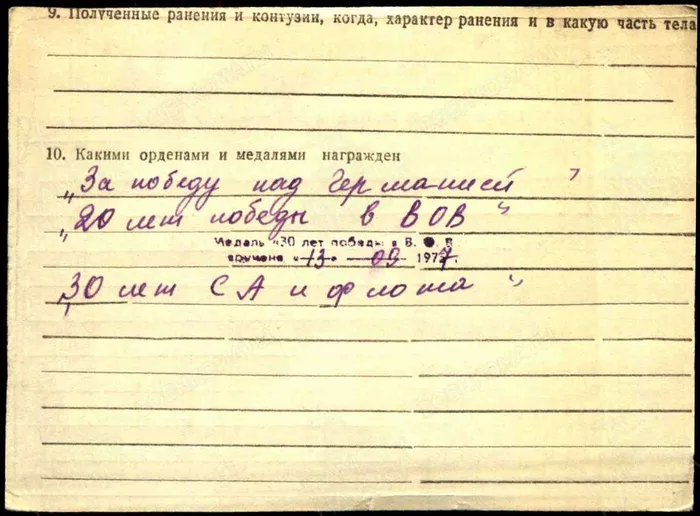 9. Полученные ранения и контузии, когда, характер ранения и в какую часть тела
10. Какими орденами и медалями награжден
„За победу над Германией"
„20 лет победы в ВОВ"
Медаль «30 лет победы в В. О. В
вручена «13» 09 1977 г.
„30 лет СА и флота"